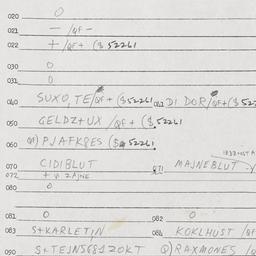 020 0
021 - /QF -
022 + /QF + ($ 52261
030 0
031 0
040 SUXO, TE/QF + ($ 52261 041 DI DOR/QF + ($ 522
050 GELDZ+UX /QF + ($ 52261
060 PJAFKRES ($ 52261
070 CIDIBLUT 071 MAJNEBLUT
072 + ZAJNE
080 0
081 0 082 0
083 S+KARLETIN 084 KOKLHUST /QF
090 S+TEJNS681ZOKT RAXMONES